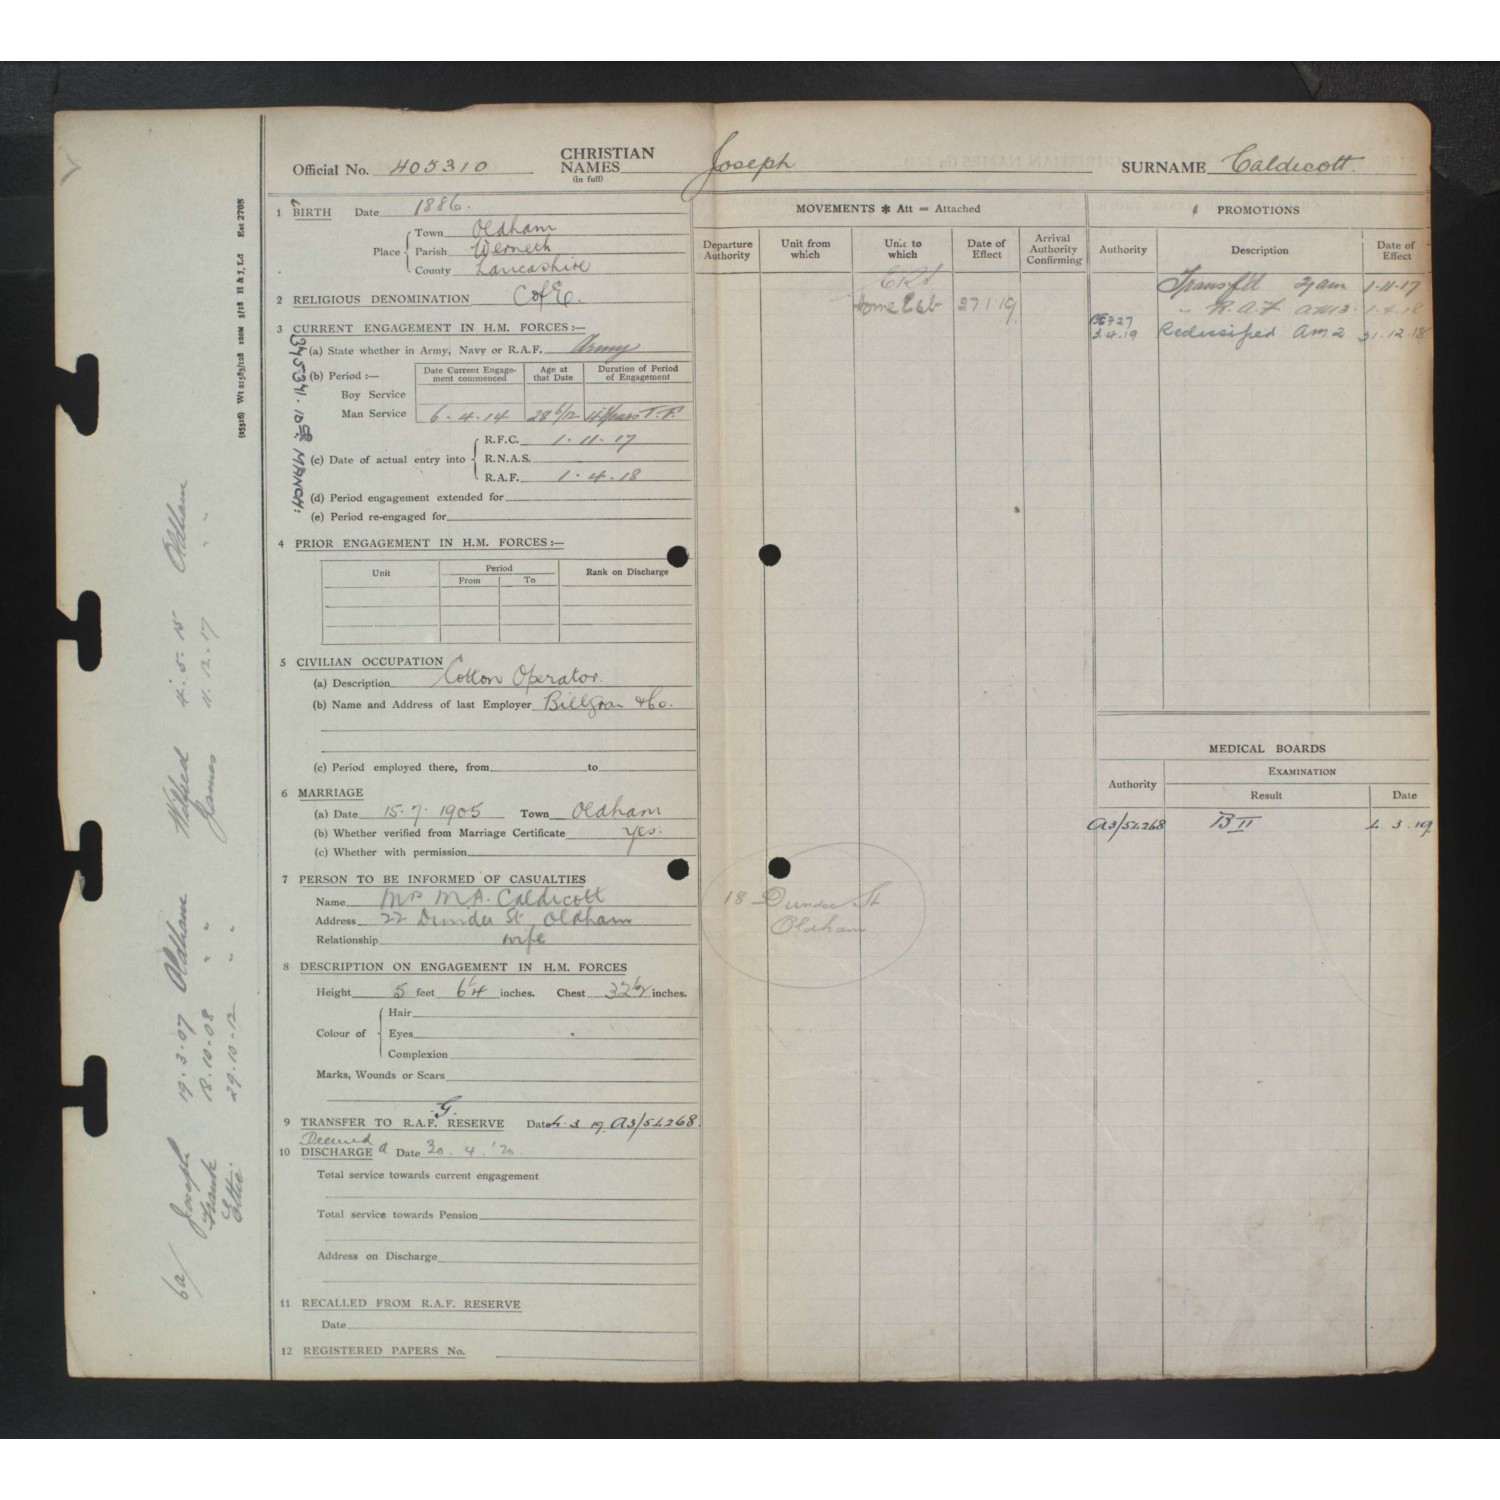 Official No. 405310 CHRISTIAN NAMES (in full) Joseph SURNAME Caldecott.
1 BIRTH Date 1886.
Place Town Oldham
Parish Werneth
County Lancashire
2 RELIGIOUS DENOMINATION C of E.
3 CURRENT ENGAGEMENT IN H.M. FORCES:—
(a) State whether in Army, Navy or R.A.F. Army
(b) Period :— Date Current Engagement commenced Age at that Date Duration of Period of Engagement
Boy Service
Man Service 6-4-14 28 6/12 4 Years T.F.
(c) Date of actual entry into R.F.C. 1-11-17
R.N.A.S.
R.A.F. 1-4-18
(d) Period engagement extended for
(e) Period re-engaged for
4 PRIOR ENGAGEMENT IN H.M. FORCES:—
Unit Period Rank on Discharge
From To
5 CIVILIAN OCCUPATION
(a) Description Cotton Operator.
(b) Name and Address of last Employer & Co.
(c) Period employed there, from to
6 MARRIAGE
(a) Date 15.7.1905 Town Oldham
(b) Whether verified from Marriage Certificate yes.
(c) Whether with permission
7 PERSON TO BE INFORMED OF CASUALTIES
Name Mrs M.A. Caldicott
Address 22 Dundee St Oldham
Relationship wife
8 DESCRIPTION ON ENGAGEMENT IN H.M. FORCES
Height 5 feet 6 1/4 inches. Chest 32 1/2 inches.
Colour of Hair
Eyes
Complexion
Marks, Wounds or Scars
9 TRANSFER TO R.A.F. G. RESERVE Date 4.3.19. A3/54268
10 Deemed DISCHARGED Date 30.4.'20.
Total service towards current engagement
Total service towards Pension
Address on Discharge
11 RECALLED FROM R.A.F. RESERVE
Date
12 REGISTERED PAPERS No.
MOVEMENTS * Att = Attached
Departure Authority Unit from which Unit to which Date of Effect Arrival Authority Confirming
Home Estb 27 1 19.
18 Dundee St
Oldham
PROMOTIONS
Authority Description Date of Effect
Transf'd 2/am 1-11-17
" R.A.F. 1.4.18
727
3.4.19 Reclassified Am 2 31.12.18
MEDICAL BOARDS
Authority EXAMINATION
Result Date
A3/54268 B II 4.3.19
(25526) Wt 21563/128 H & J, Ltd Est 2705
MANCH:
6a/ Joseph 19.3.07 Oldham Wilfred 4.5.15 Oldham
Frank 18.10.08 " " James 11.12.17 " "
Ettie 29.10.12 " "